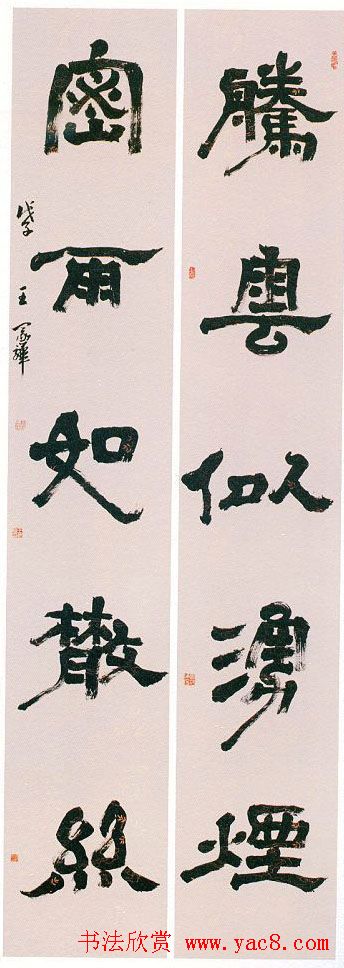 騰雲似湧煙
密雨如散絲
戊子 王
书法欣赏 www.yac8.com